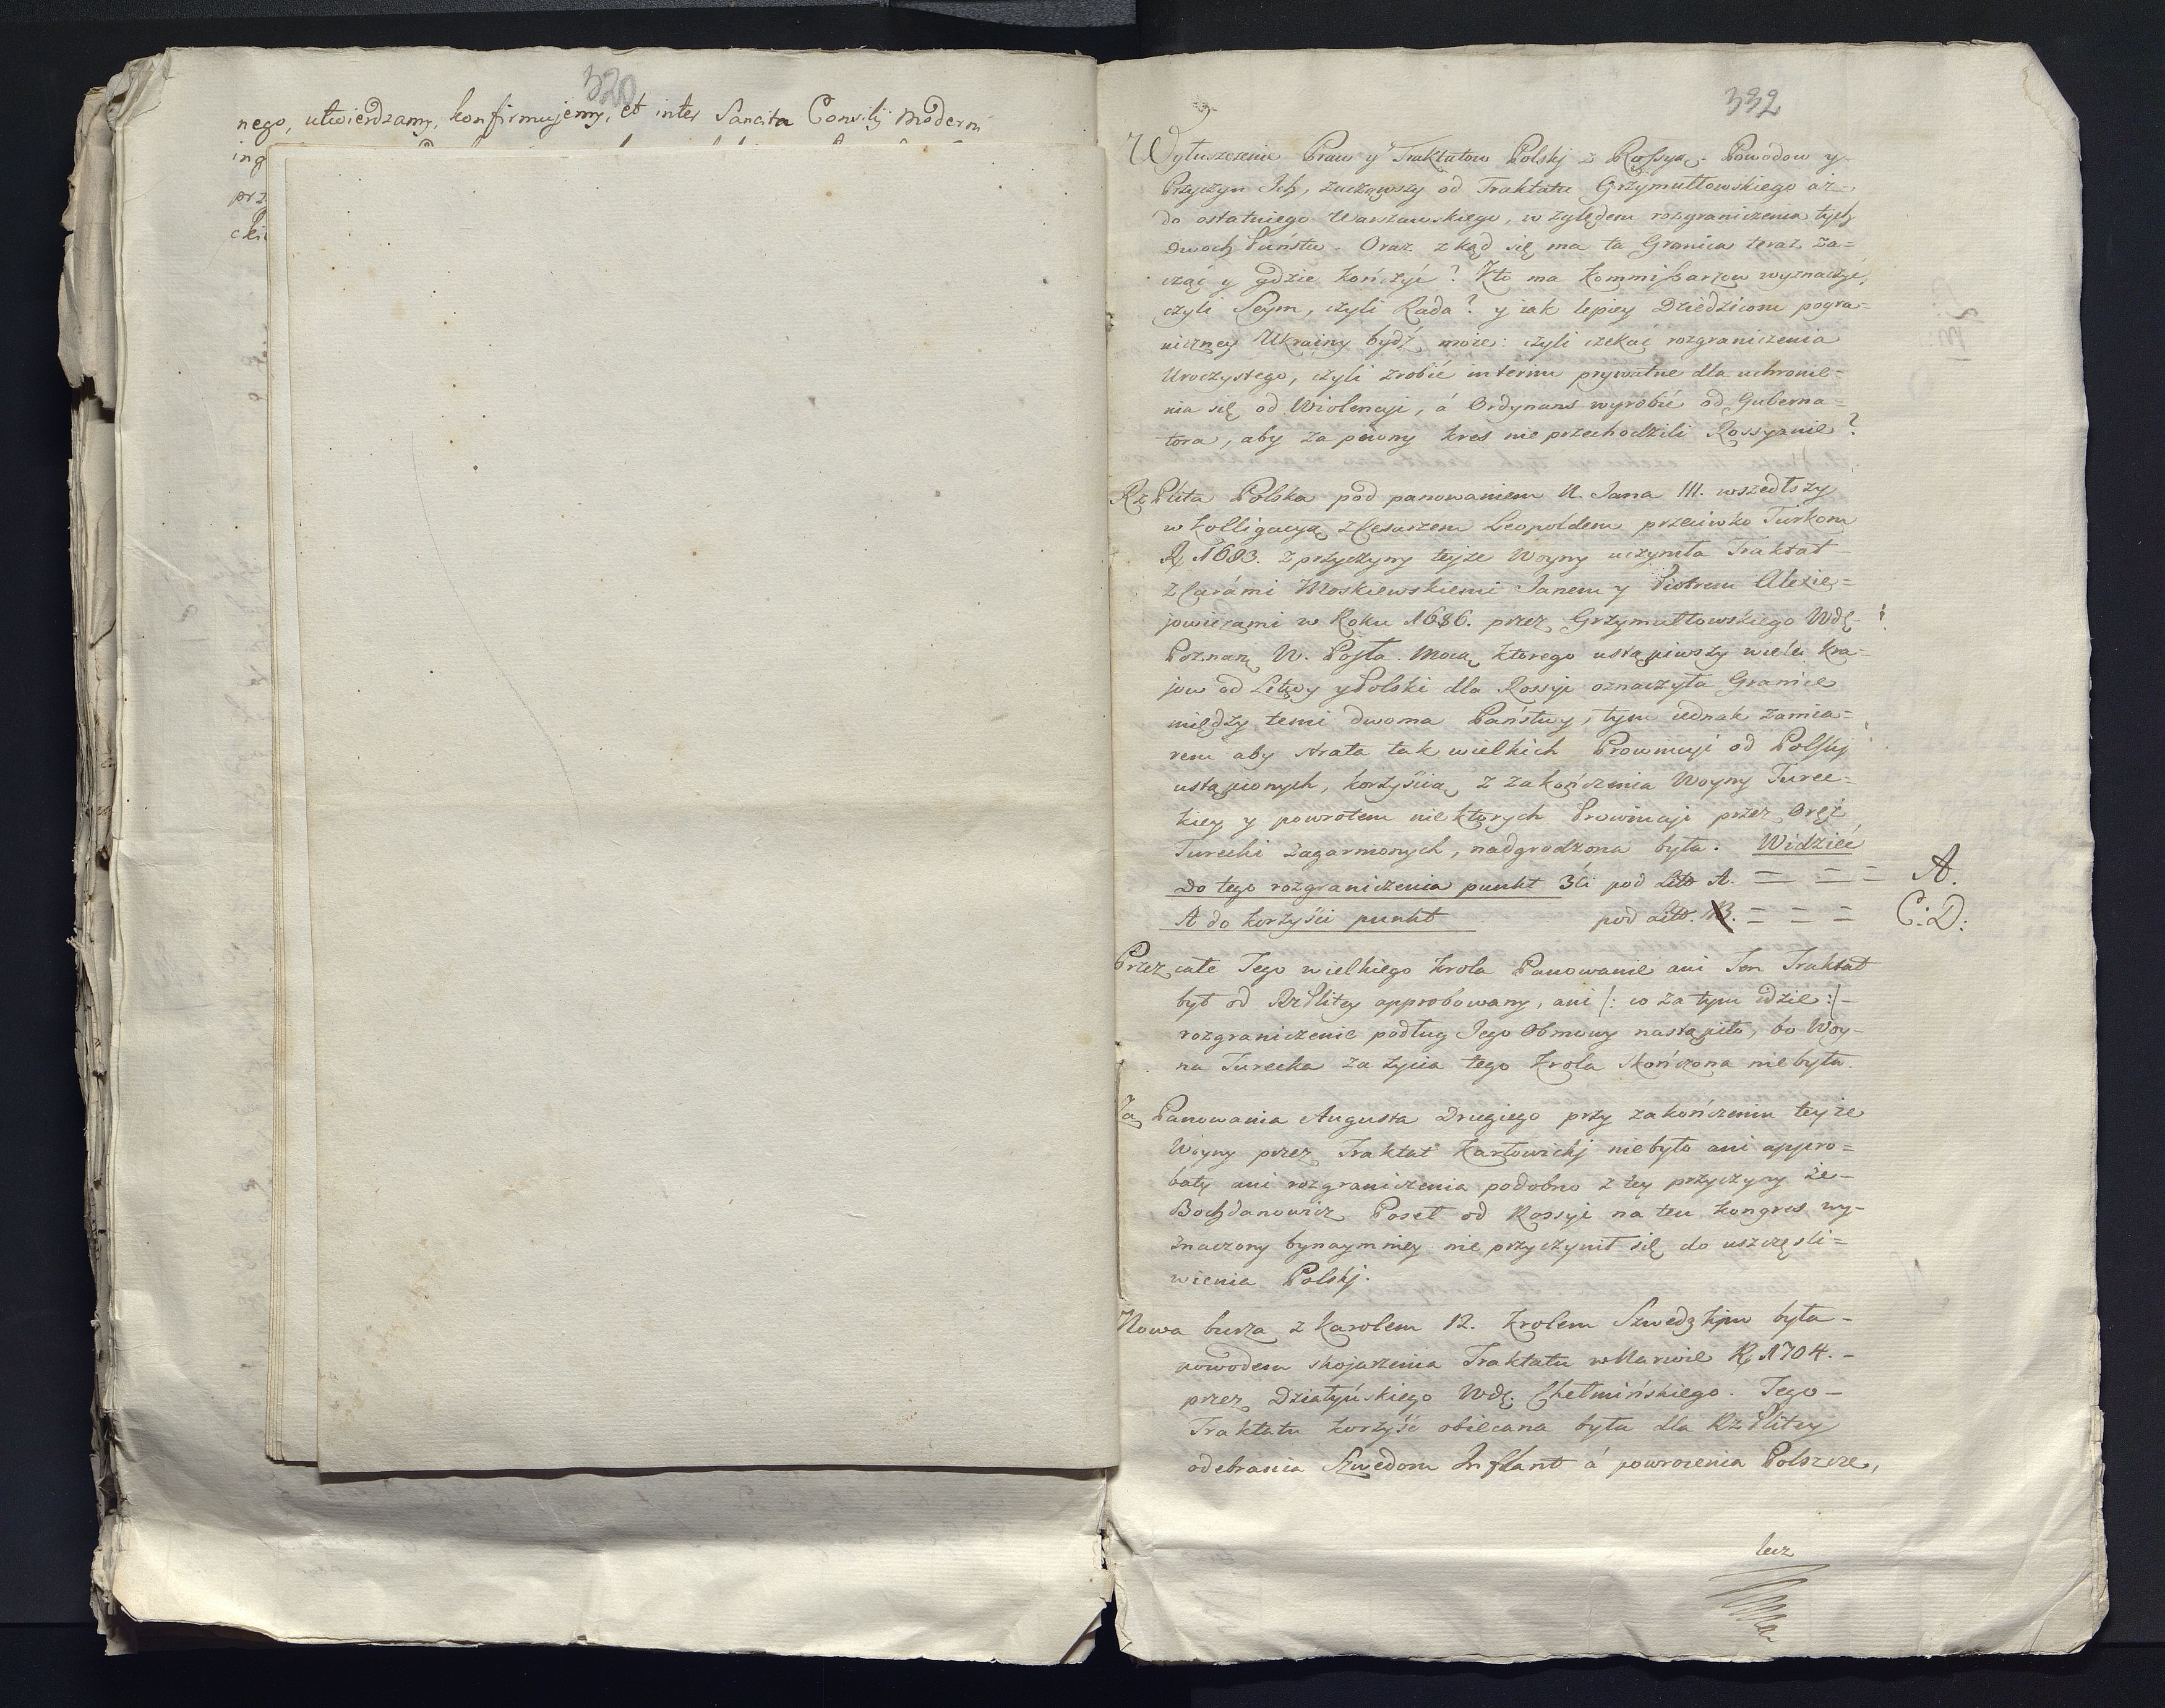 320
nego, utwierdzamy, konfirmujemy, et inter Sancita Consilij moderni
ing
prz
ckie
332
Wytuszczenie Praw y Traktatow Polskj z Rossyą. Powodow y
Przyczyn Jch, zacząwszy od Traktatu Grzymułtowskiego aż=
do ostatniego Warszawskiego, względem rozgraniczenia tych
dwoch Państw. Oraz zkąd się ma ta Granica teraz za=
cząć y gdzie kończyć? Kto ma Kommissarzow wyznaczyć,
czyli Seym, czyli Rada? y iak lepiey Dziedzicom pogra=
niczney Ukrainy bydź może: czyli czekać rozgraniczenia
Uroczystego, czyli zrobić interim prywatne dla uchronie=
nia się od Wiolencyi, á Ordynans wyrobić od Guberna=
tora, aby za pewny kres nie przechodzili Rossyanie?
RzPlita Polska pod panowaniem N. Jana III. wszedłszy
w kolligacyą z Cesarzem Leopoldem przeciwko Turkom
R. 1683. z przyczyny teyże Woyny uczyniła Traktat
z Carámi Moskiewskiemi Janem y Piotrem Alexie=
jowiczami w Roku 1686. przez Grzymułtowskiego Wdę
Poznań. N. Posła. Mocą ktorego ustąpiwszy wiele kra=
jow od Litwy y Polski dla Rossyi oznaczyła Granice
między temi dwoma Państwy, tym iednak zamia=
rem aby strata tak wielkich Prowincyi od Polskj
ustąpionych, korzyścią z zakończenia Woyny Turec=
kiey y powrotem niektorych Prowincyi przez Oręż
Turecki zagarnionych, nadgrodzona była. Widzieć
Do tego rozgraniczenia punkt 3ci pod Litt A. = = = A.
A do korzyści punkt pod Litt. B. = = = C: D:
Przez całe Tego wielkiego Krola Panowanie ani Ten Traktat
był od RzPlitey approbowany, ani /: co za tym idzie :/
rozgraniczenie podług Jego Obmowy nastąpiło, bo Woy=
na Turecka za życia tego Krola skończona nie była.
Za Panowania Augusta Drugiego przy zakończeniu teyże
Woyny przez Traktat Karłowickj niebyło ani appro=
baty ani rozgraniczenia podobno z tey przyczyny że=
Bochdanowicz Poseł od Rossyi na ten kongres wy=
znaczony bynaymniey nie przyczynił się do uszczęśli=
wienia Polskj.
Nowa burza z Karolem 12. Krolem Szwedzkim była=
powodem skojarzenia Traktatu w Narwie R. 1704.=
przez Działyńskiego Wdę Chełmińskiego. Tego=
Traktatu korzyść obiecana była dla RzPlitey
odebrania Szwedom Inflant á powrocenia Polszcze,
lecz